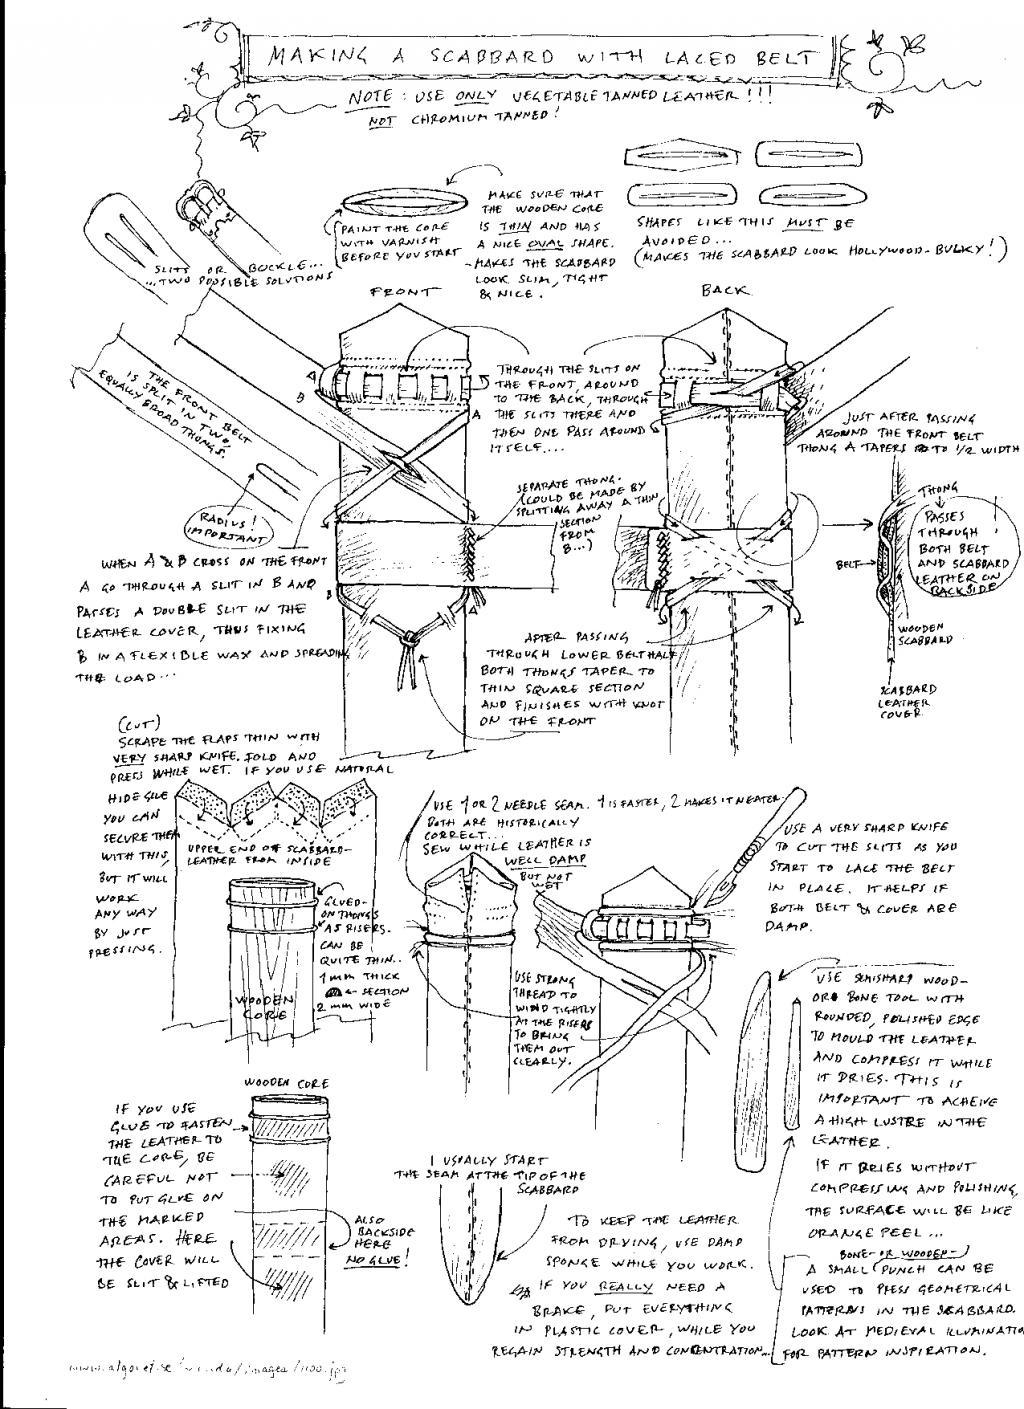 MAKING A SCABBARD WITH LACED BELT
NOTE: USE ONLY VEGETABLE TANNED LEATHER!!!
NOT CHROMIUM TANNED!
SLITS OR BUCKLE...
...TWO POSSIBLE SOLUTIONS
PAINT THE CORE
WITH VARNISH
BEFORE YOU START
MAKE SURE THAT
THE WOODEN CORE
IS THIN AND HAS
A NICE OVAL SHAPE.
- MAKES THE SCABBARD
LOOK SLIM, TIGHT
& NICE.
SHAPES LIKE THIS MUST BE
AVOIDED...
(MAKES THE SCABBARD LOOK HOLLYWOOD-BULKY!)
FRONT
BACK
THE FRONT BELT
IS SPLIT IN TWO,
EQUALLY BROAD THONGS.
RADIUS!
IMPORTANT
A
B
A
B
A
THROUGH THE SLITS ON
THE FRONT, AROUND
TO THE BACK, THROUGH
THE SLITS THERE AND
THEN ONE PASS AROUND
ITSELF....
SEPARATE THONG.
(COULD BE MADE BY
SPLITTING AWAY A THIN
SECTION
FROM
B...)
JUST AFTER PASSING
AROUND THE FRONT BELT
THONG A TAPERS TO 1/2 WIDTH
THONG
PASSES
THROUGH
BOTH BELT
AND SCABBARD
LEATHER ON
BACKSIDE
BELT
WOODEN
SCABBARD
SCABBARD
LEATHER
COVER
WHEN A & B CROSS ON THE FRONT
A GO THROUGH A SLIT IN B AND
PASSES A DOUBLE SLIT IN THE
LEATHER COVER, THUS FIXING
B IN A FLEXIBLE WAY AND SPREADING
THE LOAD...
AFTER PASSING
THROUGH LOWER BELTHALF
BOTH THONGS TAPER TO
THIN SQUARE SECTION
AND FINISHES WITH KNOT
ON THE FRONT
(CUT)
SCRAPE THE FLAPS THIN WITH
VERY SHARP KNIFE. FOLD AND
PRESS WHILE WET. IF YOU USE NATURAL
HIDE GLUE
YOU CAN
SECURE THEM
WITH THIS,
BUT IT WILL
WORK
ANY WAY
BY JUST
PRESSING.
UPPER END OF SCABBARD-
LEATHER FROM INSIDE
GLUED-
ON THONGS
AS RISERS.
CAN BE
QUITE THIN..
1 mm THICK
← SECTION
2 mm WIDE
WOODEN
CORE
USE 1 OR 2 NEEDLE SEAM. 1 IS FASTER, 2 MAKES IT NEATER
BOTH ARE HISTORICALLY
CORRECT...
SEW WHILE LEATHER IS
WELL DAMP
BUT NOT
WET
USE STRONG
THREAD TO
WIND TIGHTLY
AT THE RISERS
TO BRING
THEM OUT
CLEARLY.
USE A VERY SHARP KNIFE
TO CUT THE SLITS AS YOU
START TO LACE THE BELT
IN PLACE. IT HELPS IF
BOTH BELT & COVER ARE
DAMP.
USE SEMISHARP WOOD-
OR BONE TOOL WITH
ROUNDED, POLISHED EDGE
TO MOULD THE LEATHER
AND COMPRESS IT WHILE
IT DRIES. THIS IS
IMPORTANT TO ACHEIVE
A HIGH LUSTRE IN THE
LEATHER.
IF IT DRIES WITHOUT
COMPRESSING AND POLISHING,
THE SURFACE WILL BE LIKE
ORANGE PEEL...
BONE- OR WOODEN-
A SMALL PUNCH CAN BE
USED TO PRESS GEOMETRICAL
PATTERNS IN THE SCABBARD.
LOOK AT MEDIEVAL ILLUMINATIO
FOR PATTERN INSPIRATION.
WOODEN CORE
IF YOU USE
GLUE TO FASTEN
THE LEATHER TO
THE CORE, BE
CAREFUL NOT
TO PUT GLUE ON
THE MARKED
AREAS. HERE
THE COVER WILL
BE SLIT & LIFTED
ALSO
BACKSIDE
HERE
NO GLUE!
I USUALLY START
THE SEAM AT THE TIP OF THE
SCABBARD
TO KEEP THE LEATHER
FROM DRYING, USE DAMP
SPONGE WHILE YOU WORK.
IF YOU REALLY NEED A
BRAKE, PUT EVERYTHING
IN PLASTIC COVER, WHILE YOU
REGAIN STRENGTH AND CONCENTRATION...